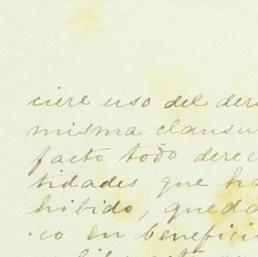 ciere uso del dere
misma clausu
facto todo derec
tidades que ha
hibido, queda
co en benefici